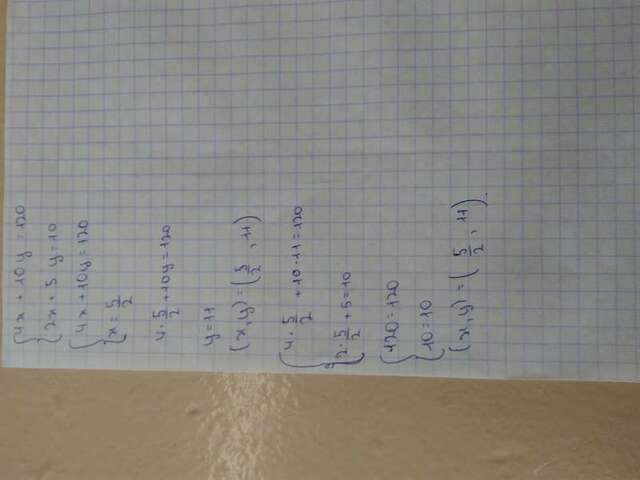 {4x + 10y = 120
{2x + 5 y = 10
{4x + 10y = 120
{x = 5/2
4 · 5/2 + 10y = 120
y = 11
(x, y) = (5/2, 11)
{4 · 5/2 + 10 · 11 = 120
{2 · 5/2 + 5 = 10
{120 = 120
{10 = 10
(x, y) = (5/2, 11).